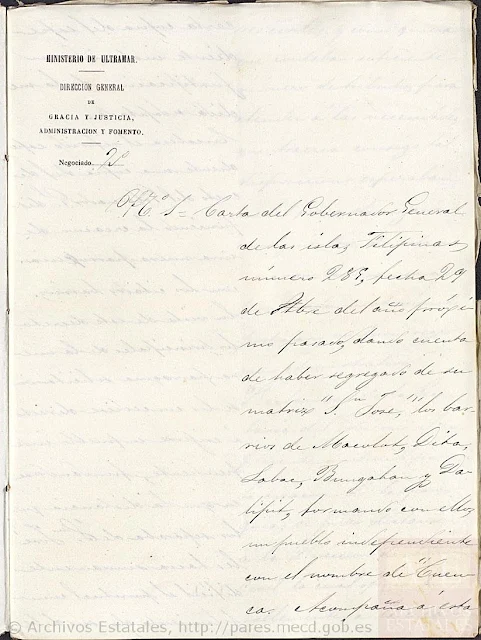 MINISTERIO DE ULTRAMAR.
DIRECCION GENERAL
DE
GRACIA Y JUSTICIA,
ADMINISTRACION Y FOMENTO.
Negociado
Carta del Gobernador General
de las islas Filipinas
número 285, fecha 29
de 8tbre del año próxi
mo pasado, dando cuenta
de haber segregado de su
matriz "S.n José," los bar
rios de Macolot, Dita,
Labac, Bungahan y Da
lipit, formando con ellos
un pueblo independiente
con el nombre de "Cuen
ca. Acompaña á esta
© Archivos Estatales, http://pares.mecd.gob.es